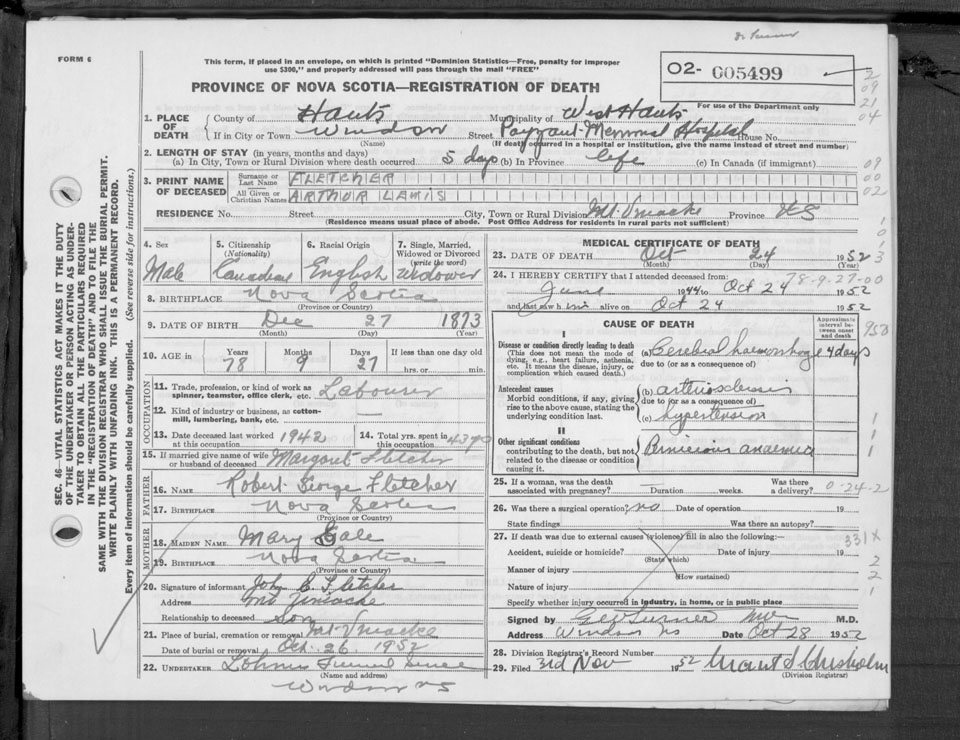 FORM 6
This form, if placed in an envelope, on which is printed "Dominion Statistics—Free, penalty for improper
use $300," and properly addressed will pass through the mail "FREE"
PROVINCE OF NOVA SCOTIA—REGISTRATION OF DEATH
02- 005499
For use of the Department only
2
09
21
04
1. PLACE OF DEATH
County of Hants Municipality of West Hants
If in City or Town Windsor Street Payzant Memorial Hospital House No.
(Name) (If death occurred in a hospital or institution, give the name instead of street and number)
2. LENGTH OF STAY (in years, months and days)
(a) In City, Town or Rural Division where death occurred 5 days (b) In Province life (c) In Canada (if immigrant)
09
00
02
3. PRINT NAME OF DECEASED
Surname or Last Name FLETCHER
All Given or Christian Names ARTHUR LEWIS
RESIDENCE No. Street City, Town or Rural Division Mt. Uniacke Province NS
(Residence means usual place of abode. Post Office Address for residents in rural parts not sufficient)
SEC. 46—VITAL STATISTICS ACT MAKES IT THE DUTY
OF THE UNDERTAKER OR PERSON ACTING AS UNDER-
TAKER TO OBTAIN ALL THE PARTICULARS REQUIRED
IN THE "REGISTRATION OF DEATH" AND TO FILE THE
SAME WITH THE DIVISION REGISTRAR WHO SHALL ISSUE THE BURIAL PERMIT.
WRITE PLAINLY WITH UNFADING INK. THIS IS A PERMANENT RECORD.
Every item of information should be carefully supplied. (See reverse side for instructions.)
4. Sex
Male
5. Citizenship
(Nationality)
Canadian
6. Racial Origin
English
7. Single, Married,
Widowed or Divorced
(write the word)
Widower
8. BIRTHPLACE Nova Scotia
(Province or Country)
9. DATE OF BIRTH Dec 27 1873
(Month) (Day) (Year)
10. AGE in
Years Months Days If less than one day old
78 9 27 hrs. or min.
OCCUPATION
11. Trade, profession, or kind of work as
spinner, teamster, office clerk, etc. Labourer
12. Kind of industry or business, as cotton-
mill, lumbering, bank, etc. —
13. Date deceased last worked
at this occupation 1942
14. Total yrs. spent in
this occupation
15. If married give name of wife
or husband of deceased Margaret Fletcher
FATHER
16. NAME Robert George Fletcher
17. BIRTHPLACE Nova Scotia
(Province or Country)
MOTHER
18. MAIDEN NAME Mary Gale
19. BIRTHPLACE Nova Scotia
(Province or Country)
20. Signature of informant John C. Fletcher
Address Mt Uniacke
Relationship to deceased Son
21. Place of burial, cremation or removal Mt. Uniacke
Date of burial or removal Oct. 26 1952
22. UNDERTAKER
(Name and address)
Windsor NS
MEDICAL CERTIFICATE OF DEATH
23. DATE OF DEATH Oct 24 1952
(Month) (Day) (Year)
24. I HEREBY CERTIFY that I attended deceased from:
78-9-27-00
June 1944 to Oct 24 1952
and last saw him alive on Oct 24 1952
CAUSE OF DEATH
Approximate
interval be-
tween onset
and death
I
Disease or condition directly leading to death
(This does not mean the mode of
dying, e.g., heart failure, asthenia,
etc. It means the disease, injury, or
complication which caused death.)
(a) Cerebral haemorrhage 4 days
due to (or as a consequence of)
Antecedent causes
Morbid conditions, if any, giving
rise to the above cause, stating the
underlying condition last.
(b) arteriosclerosis
due to (or as a consequence of)
(c) hypertension
II
Other significant conditions
contributing to the death, but not
related to the disease or condition
causing it.
Pernicious anaemia
25. If a woman, was the death
associated with pregnancy? Duration weeks. Was there
a delivery?
0-24-2
26. Was there surgical operation? no Date of operation 19
State findings Was there an autopsy?
27. If death was due to external causes (violence) fill in also the following:—
331X
Accident, suicide or homicide? Date of injury 19
(State which)
Manner of injury
(How sustained)
Nature of injury
Specify whether injury occurred in industry, in home, or in public place
Signed by M.D.
Address Windsor NS Date Oct 28 1952
28. Division Registrar's Record Number
29. Filed 3rd Nov 1952 Grant S. Chisholm
(Division Registrar)